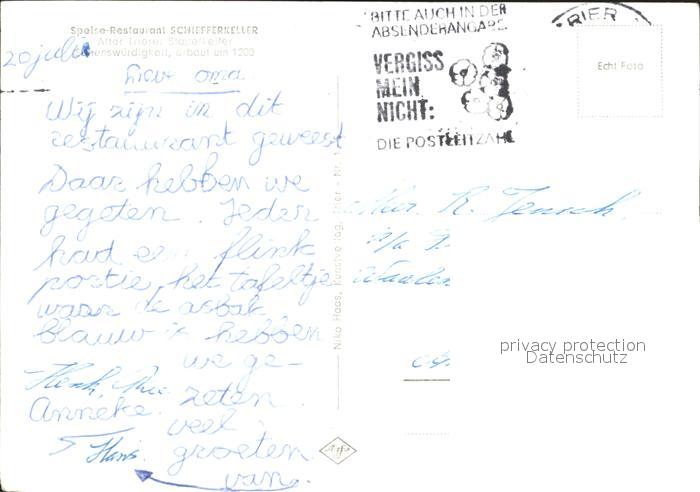 Speise-Restaurant SCHIEFFERKELLER
Alter Trierer
erbaut um 1200
20 juli
Lieve oma
Wij zijn in dit
restaurant geweest
Daar hebben we
gegeten. Ieder
had een flink
portie, het tafeltje
waar de asbak
blauw is hebben
we ge-
zeten
veel
groeten
van.
Henk,
Anneke.
Hans.
Niko Haas, Trier - Nr.
BITTE AUCH IN DER
ABSENDERANGABE
VERGISS
MEIN
NICHT:
DIE POSTLEITZAHL
TRIER
Echt Foto
R.
privacy protection
Datenschutz
Agfa